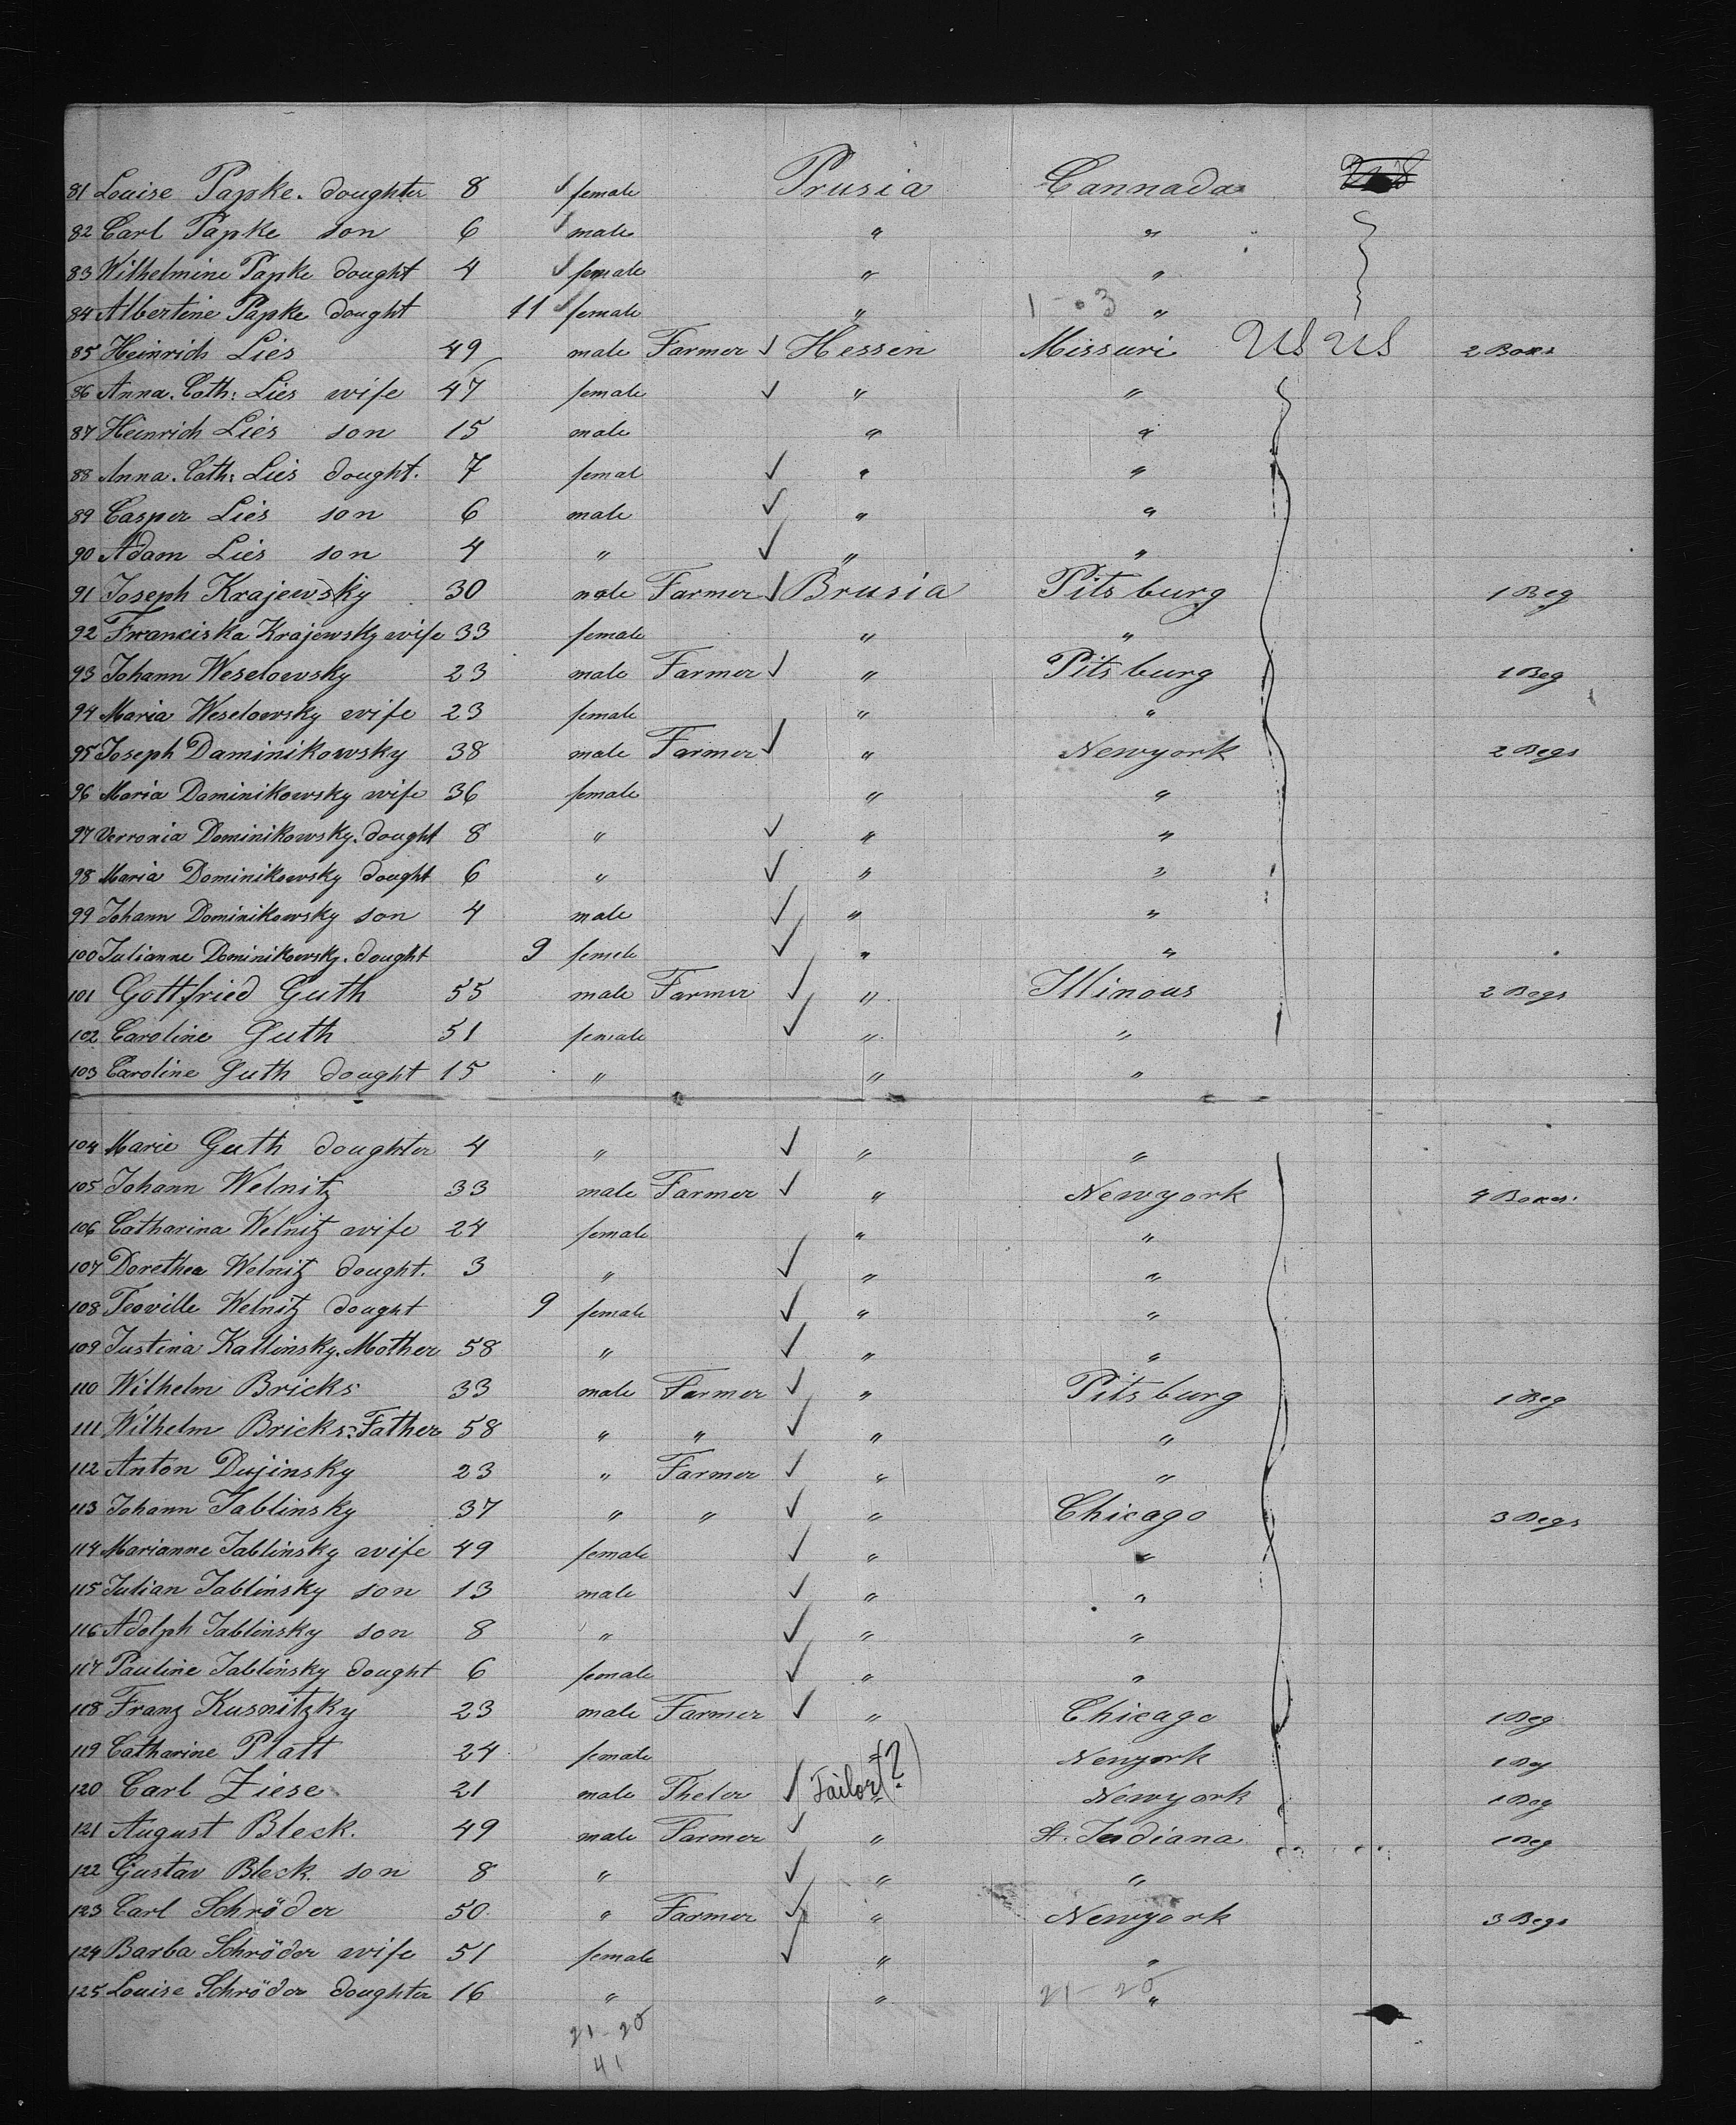 81 Louise Papke. doughter 8 female Prusia Cannada
82 Carl Papke son 6 male " "
83 Wilhelmine Papke dought 4 female " "
84 Albertine Papke dought 11 female " "
85 Heinrich Lies 49 male Farmer Hessen Missuri US US 2 Boxes
86 Anna. Cath: Lies wife 47 female " "
87 Heinrich Lies son 15 male " "
88 Anna. Cath: Lies dought. 7 femal " "
89 Casper Lies son 6 male " "
90 Adam Lies son 4 " " "
91 Joseph Krajewsky 30 male Farmer Brusia Pitsburg 1 Beg
92 Franciska Krajewsky wife 33 female " "
93 Johann Weselowsky 23 male Farmer " Pitsburg 1 Beg
94 Maria Weselowsky wife 23 female " "
95 Joseph Daminikowsky 38 male Farmer " Newyork 2 Begs
96 Maria Dominikowsky wife 36 female " "
97 Verronia Dominikowsky. dought 8 " " "
98 Maria Dominikowsky dought 6 " " "
99 Johann Dominikowsky son 4 male " "
100 Julianne Dominikowsky. dought 9 female " "
101 Gottfried Guth 55 male Farmer " Illinous 2 Begs
102 Caroline Guth 51 female " "
103 Caroline Guth dought 15 " " "
104 Marie Guth doughter 4 " " "
105 Johann Welnitz 33 male Farmer " Newyork 4 Boxes
106 Catharina Welnitz wife 24 female " "
107 Dorethea Welnitz dought. 3 " " "
108 Teoville Welnitz dought 9 female " "
109 Justina Kallinsky. Mother 58 " " "
110 Wilhelm Bricks 33 male Farmer " Pitsburg 1 Beg
111 Wilhelm Bricks: Father 58 " " " "
112 Anton Dujinsky 23 " Farmer " "
113 Johann Jablinsky 37 " " " Chicago 3 Begs
114 Marianne Jablinsky wife 49 female " "
115 Julian Jablinsky son 13 male " "
116 Adolph Jablinsky son 8 " " "
117 Pauline Jablinsky dought 6 female " "
118 Franz Kusnitzky 23 male Farmer " Chicago 1 Beg
119 Catharine Platt 24 female " Newyork 1 Beg
120 Carl Ziese 21 male Theler Tailor (?) " Newyork 1 Beg
121 August Bleck. 49 male Farmer " St. Indiana 1 Beg
122 Gustav Bleck. son 8 " " "
123 Carl Schröder 50 " Farmer " Newyork 3 Begs
124 Barba Schröder wife 51 female " "
125 Louise Schröder doughter 16 " " "
21-20
41